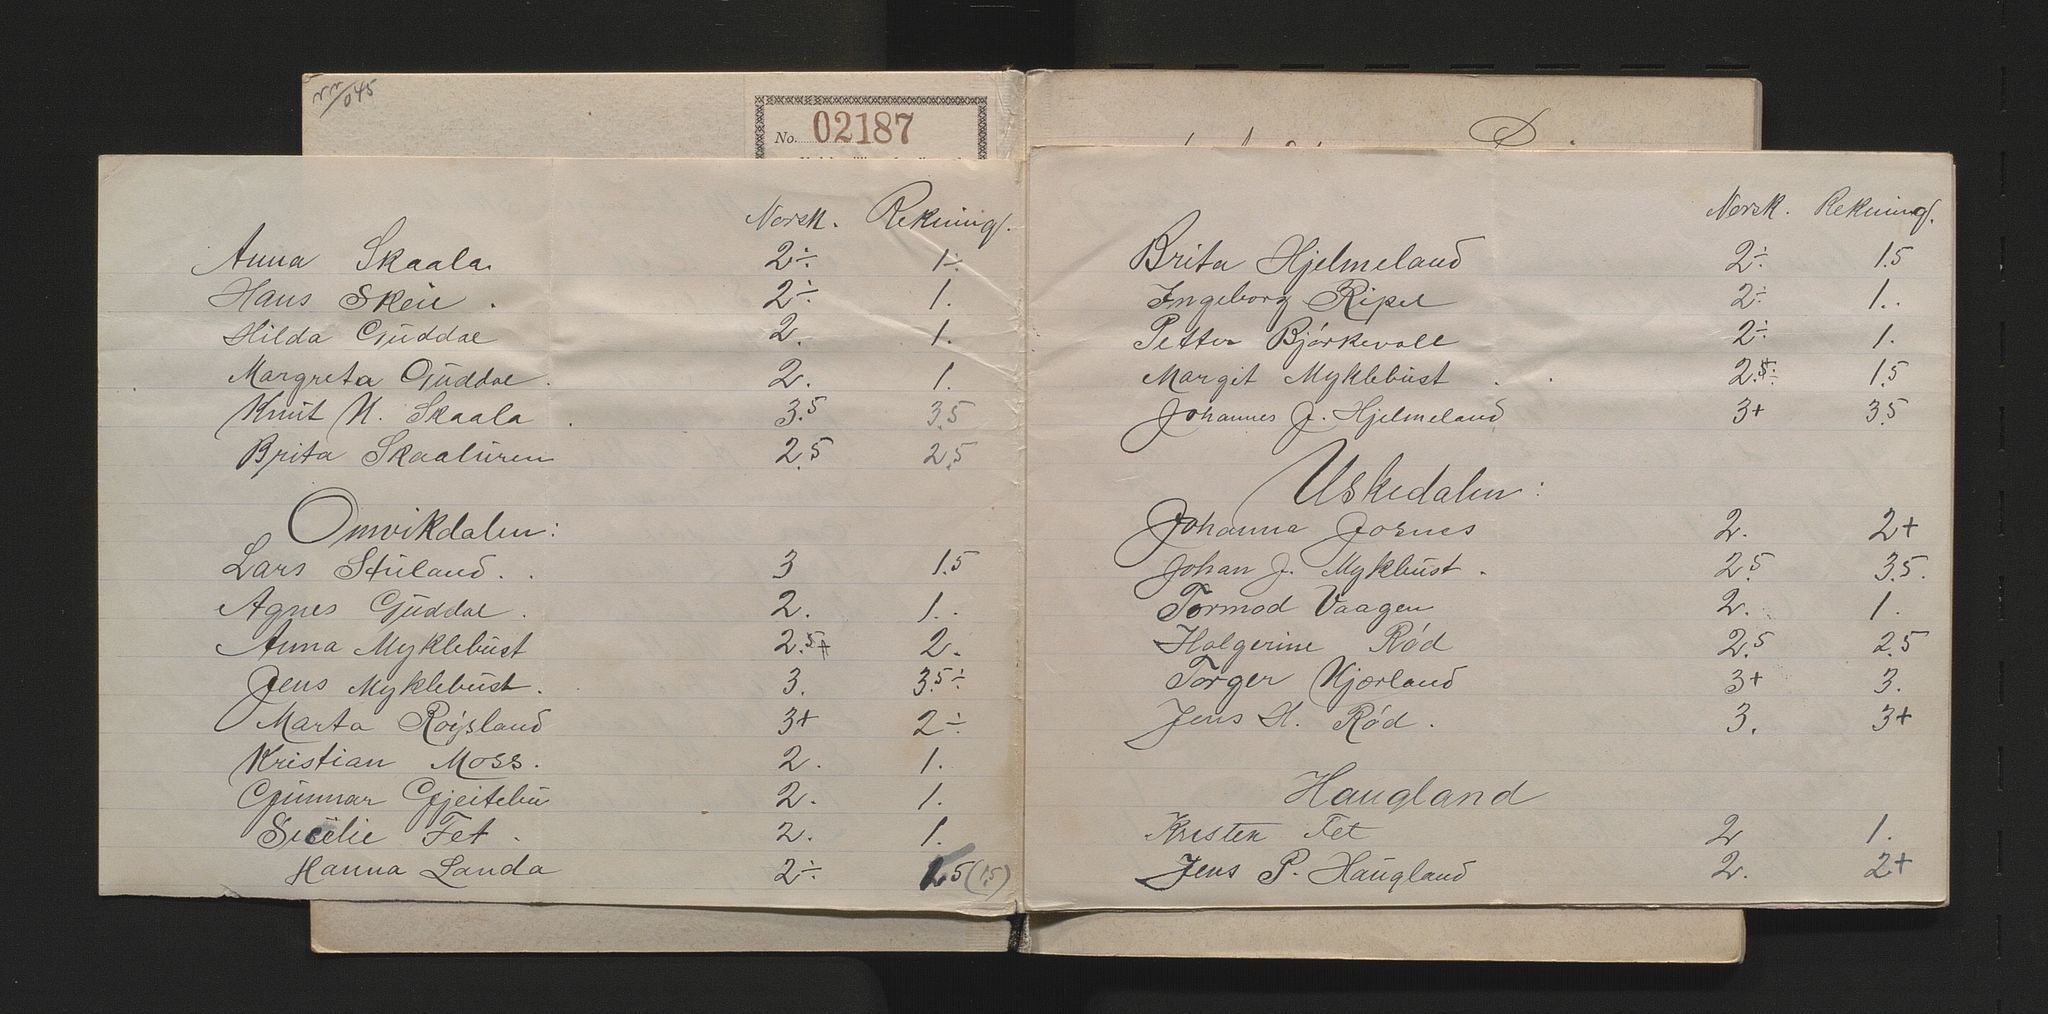 nr/045
No. 02187
Norsk. Rekning.
Anna Skaala 2÷. 1÷.
Hans Skeie. 2÷. 1.
Hilda Guddal 2. 1.
Margreta Guddal. 2. 1.
Knut N. Skaala. 3.5 3.5
Brita Skaaluren 2.5 2.5
Omvikdalen:
Lars Stuland. 3 1.5
Agnes Guddal. 2. 1.
Anna Myklebust 2.5+ 2.
Jens Myklebust. 3. 3.5÷
Marta Røysland 3+ 2÷
Kristian Moss. 2. 1.
Gunnar Gjeitebu 2. 1.
Sicelie Fet. 2. 1.
Hanna Landa 2÷ 2.5 (1.5)
Norsk. Rekning.
Brita Hjelmeland 2÷. 1.5
Ingeborg Ripel 2÷ 1.
Petter Bjørkevoll 2÷ 1.
Margit Myklebust. 2.5÷ 1.5
Johannes J. Hjelmeland 3+ 3.5
Uskedalen:
Johanna Josnes 2. 2+
Johan J. Myklbust. 2.5 3.5.
Tormod Vaagen 2. 1.
Holgerine Rød 2.5 2.5
Torger Kjærland 3+ 3.
Jens H. Rød. 3. 3+
Haugland
Kristen Fet 2 1.
Jens P. Haugland 2. 2+